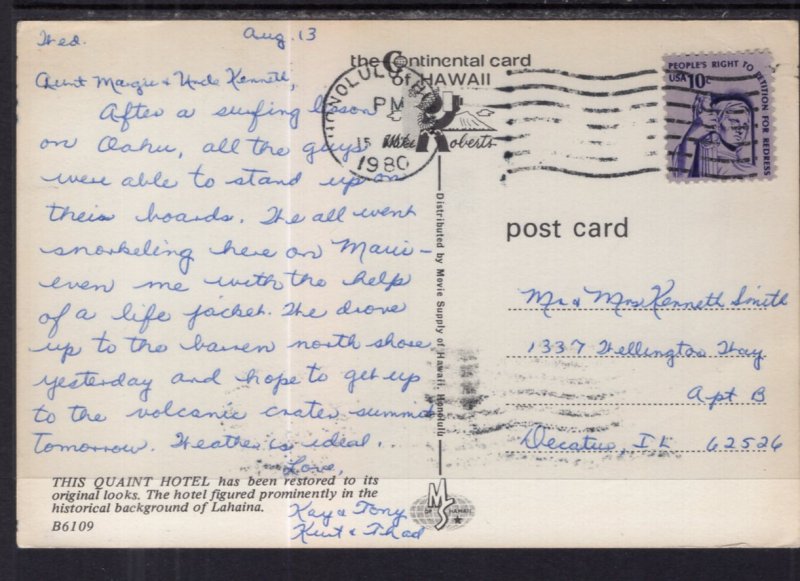 Wed. Aug. 13
Aunt Margie & Uncle Kenneth,
After a surfing lesson
on Oahu, all the guys
were able to stand up on
their boards. We all went
snorkeling here on Maui –
even me with the help
of a life jacket. We drove
up to the barren north shore
yesterday and hope to get up
to the volcanic crater summit
tomorrow. Weather is ideal..
Love,
Kay & Tony
Kurt & Thad
THIS QUAINT HOTEL has been restored to its
original looks. The hotel figured prominently in the
historical background of Lahaina.
B6109
the Continental card
of HAWAII
Mike Roberts
HONOLULU, HI
PM
15
1980
PEOPLE'S RIGHT TO PETITION FOR REDRESS
USA 10c
Distributed by Movie Supply of Hawaii, Honolulu
MS
OF HAWAII
post card
Mr & Mrs Kenneth Smith
1337 Wellington Way
Apt B
Decatur, IL 62526